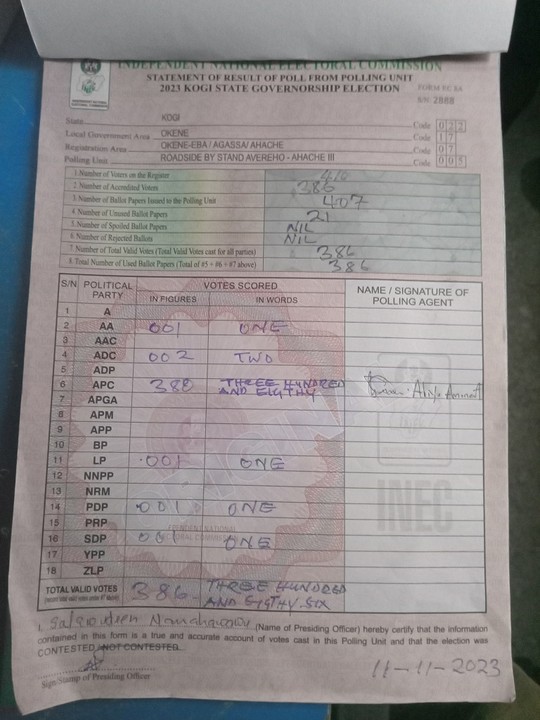 INDEPENDENT NATIONAL ELECTORAL COMMISSION
STATEMENT OF RESULT OF POLL FROM POLLING UNIT
2023 KOGI STATE GOVERNORSHIP ELECTION
FORM EC 8A
S/N: 2888
State KOGI Code 022
Local Government Area OKENE Code 12
Registration Area OKENE-EBA / AGASSA/ AHACHE Code 07
Polling Unit ROADSIDE BY STAND AVEREHO - AHACHE III Code 005
1 Number of Voters on the Register
2 Number of Accredited Voters 386
3 Number of Ballot Papers Issued to the Polling Unit 407
4 Number of Unused Ballot Papers 21
5 Number of Spoiled Ballot Papers NIL
6 Number of Rejected Ballots NIL
7 Number of Total Valid Votes (Total Valid Votes cast for all parties) 386
8 Total Number of Used Ballot Papers (Total of #5 + #6 + #7 above) 386
S/N POLITICAL PARTY VOTES SCORED NAME / SIGNATURE OF POLLING AGENT
IN FIGURES IN WORDS
1 A
2 AA 001 ONE
3 AAC
4 ADC 002 TWO
5 ADP
6 APC 380 THREE HUNDRED AND EIGTHY
7 APGA
8 APM
9 APP
10 BP
11 LP 001 ONE
12 NNPP
13 NRM
14 PDP 001 ONE
15 PRP
16 SDP 001 ONE
17 YPP
18 ZLP
INEC
TOTAL VALID VOTES 386 THREE HUNDRED AND EIGTHY SIX
I, (Name of Presiding Officer) hereby certify that the information
contained in this form is a true and accurate account of votes cast in this Polling Unit and that the election was
CONTESTED / NOT CONTESTED.
11-11-2023
Sign/Stamp of Presiding Officer